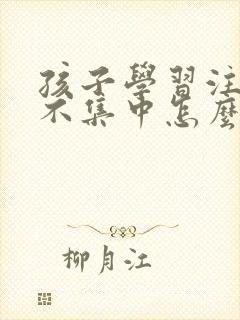 孩子學習注
不集中怎麼
柳月江